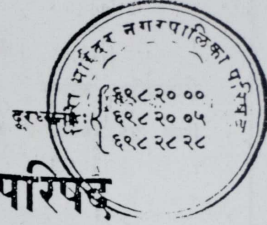 मिरा भाईंदर नगरपालिका परिषद
दूरध्वनी:
६९८ २० ००
६९८ २० ०५
६९८ २८ २८
परिषद